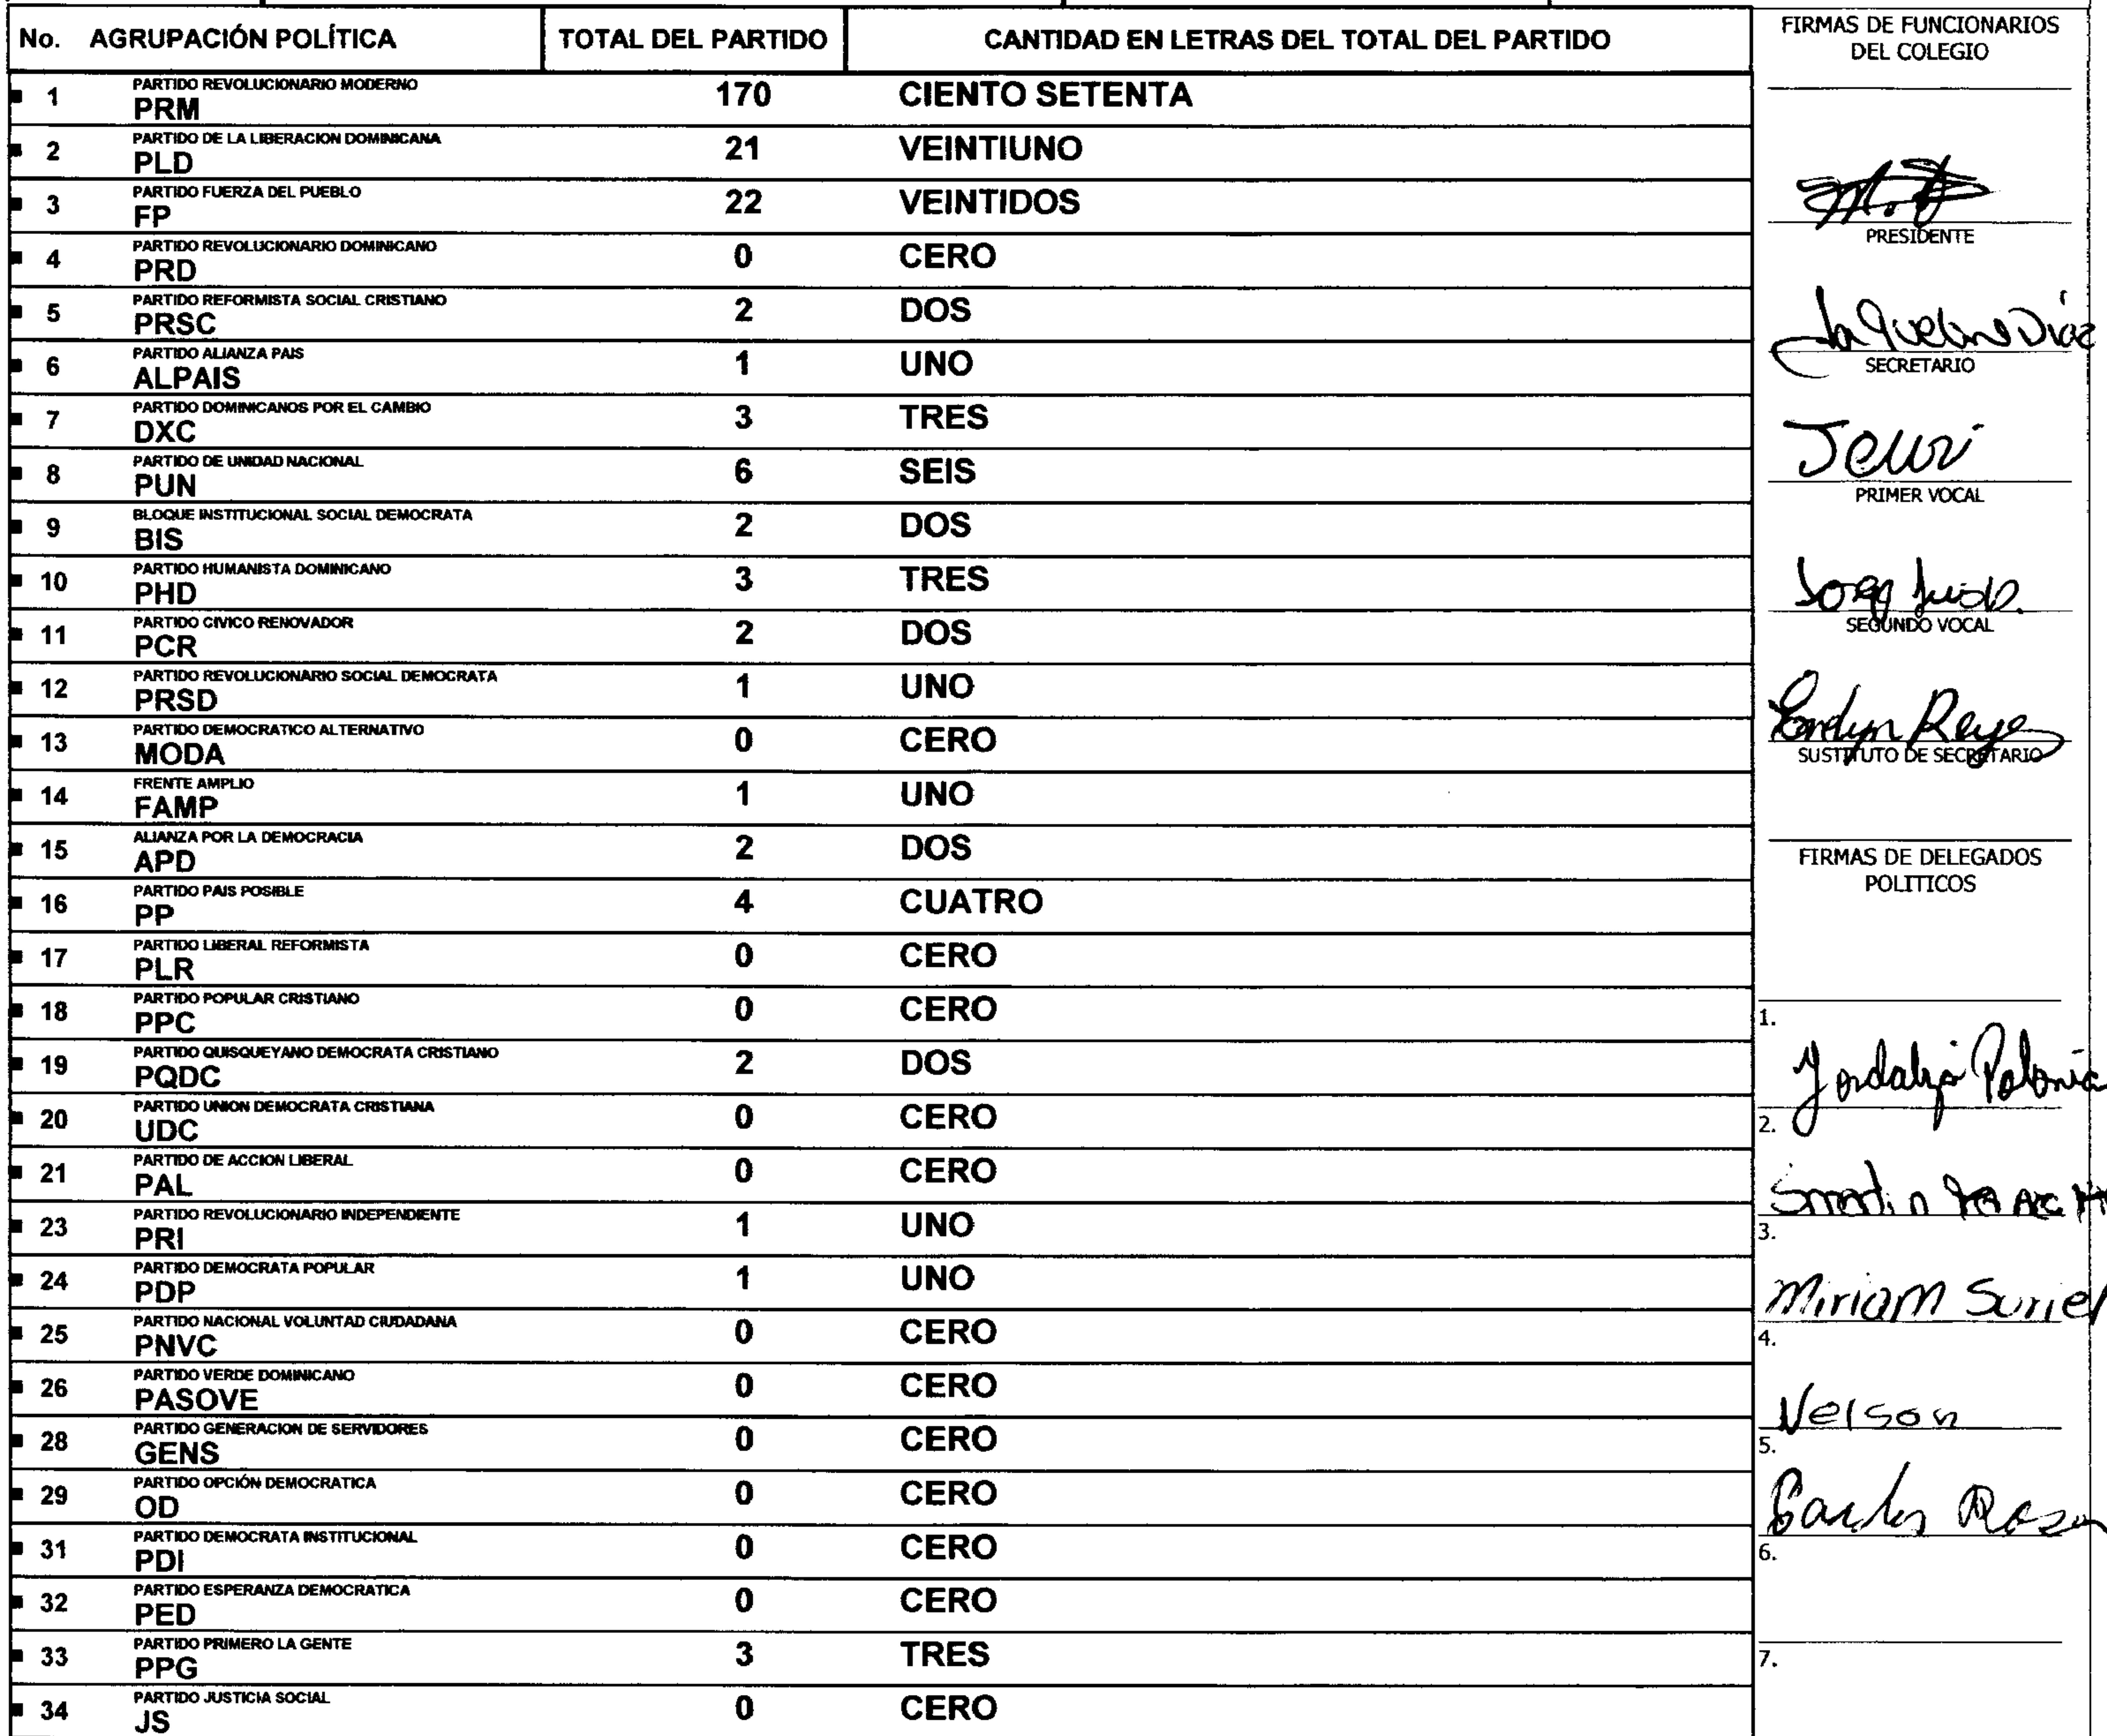 No. AGRUPACIÓN POLÍTICA TOTAL DEL PARTIDO CANTIDAD EN LETRAS DEL TOTAL DEL PARTIDO
1 PARTIDO REVOLUCIONARIO MODERNO
PRM 170 CIENTO SETENTA
2 PARTIDO DE LA LIBERACION DOMINICANA
PLD 21 VEINTIUNO
3 PARTIDO FUERZA DEL PUEBLO
FP 22 VEINTIDOS
4 PARTIDO REVOLUCIONARIO DOMINICANO
PRD 0 CERO
5 PARTIDO REFORMISTA SOCIAL CRISTIANO
PRSC 2 DOS
6 PARTIDO ALIANZA PAIS
ALPAIS 1 UNO
7 PARTIDO DOMINICANOS POR EL CAMBIO
DXC 3 TRES
8 PARTIDO DE UNIDAD NACIONAL
PUN 6 SEIS
9 BLOQUE INSTITUCIONAL SOCIAL DEMOCRATA
BIS 2 DOS
10 PARTIDO HUMANISTA DOMINICANO
PHD 3 TRES
11 PARTIDO CIVICO RENOVADOR
PCR 2 DOS
12 PARTIDO REVOLUCIONARIO SOCIAL DEMOCRATA
PRSD 1 UNO
13 PARTIDO DEMOCRATICO ALTERNATIVO
MODA 0 CERO
14 FRENTE AMPLIO
FAMP 1 UNO
15 ALIANZA POR LA DEMOCRACIA
APD 2 DOS
16 PARTIDO PAIS POSIBLE
PP 4 CUATRO
17 PARTIDO LIBERAL REFORMISTA
PLR 0 CERO
18 PARTIDO POPULAR CRISTIANO
PPC 0 CERO
19 PARTIDO QUISQUEYANO DEMOCRATA CRISTIANO
PQDC 2 DOS
20 PARTIDO UNION DEMOCRATA CRISTIANA
UDC 0 CERO
21 PARTIDO DE ACCION LIBERAL
PAL 0 CERO
23 PARTIDO REVOLUCIONARIO INDEPENDIENTE
PRI 1 UNO
24 PARTIDO DEMOCRATA POPULAR
PDP 1 UNO
25 PARTIDO NACIONAL VOLUNTAD CIUDADANA
PNVC 0 CERO
26 PARTIDO VERDE DOMINICANO
PASOVE 0 CERO
28 PARTIDO GENERACION DE SERVIDORES
GENS 0 CERO
29 PARTIDO OPCIÓN DEMOCRATICA
OD 0 CERO
31 PARTIDO DEMOCRATA INSTITUCIONAL
PDI 0 CERO
32 PARTIDO ESPERANZA DEMOCRATICA
PED 0 CERO
33 PARTIDO PRIMERO LA GENTE
PPG 3 TRES
34 PARTIDO JUSTICIA SOCIAL
JS 0 CERO
FIRMAS DE FUNCIONARIOS
DEL COLEGIO
PRESIDENTE
Díaz
SECRETARIO
PRIMER VOCAL
SEGUNDO VOCAL
Reyes
SUSTITUTO DE SECRETARIO
FIRMAS DE DELEGADOS
POLITICOS
1.
Polonia
2.
3.
Miriam Suriel
4.
Nelson
5.
Carlos
6.
7.